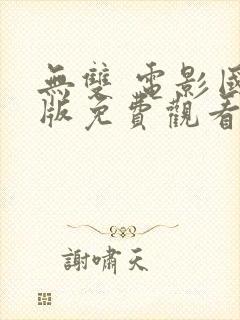 無雙 電影國
版免費觀看
謝嘯天